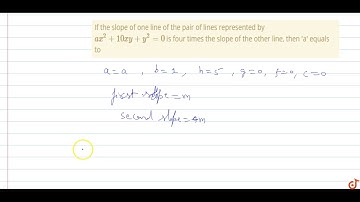 If the slope of one line of the pair of lines represented by
ax² + 10xy + y² = 0 is four times the slope of the other line, then 'a' equals
to
a = a , b = 1 , h = 5 , g = 0, f = 0, c = 0
first slope = m
second slope = 4m